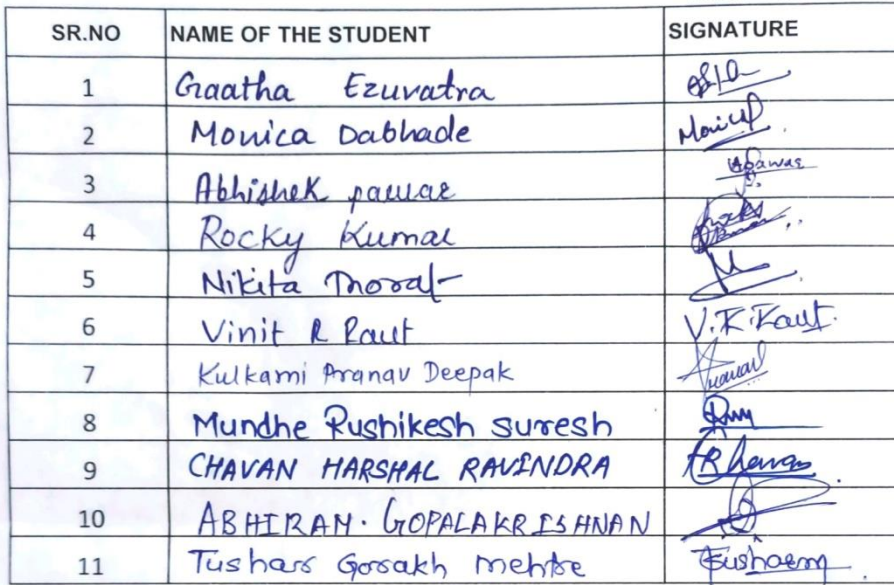 SR.NO NAME OF THE STUDENT SIGNATURE
1 Gaatha Ezuvatra
2 Monica Dabhade
3 Abhishek pawar
4 Rocky Kumar
5 Nikita Thorat
6 Vinit R Raut
7 Kulkarni Pranav Deepak
8 Mundhe Rushikesh suresh
9 CHAVAN HARSHAL RAVINDRA
10 ABHIRAM. GOPALAKRISHNAN
11 Tushar Gorakh mehtre